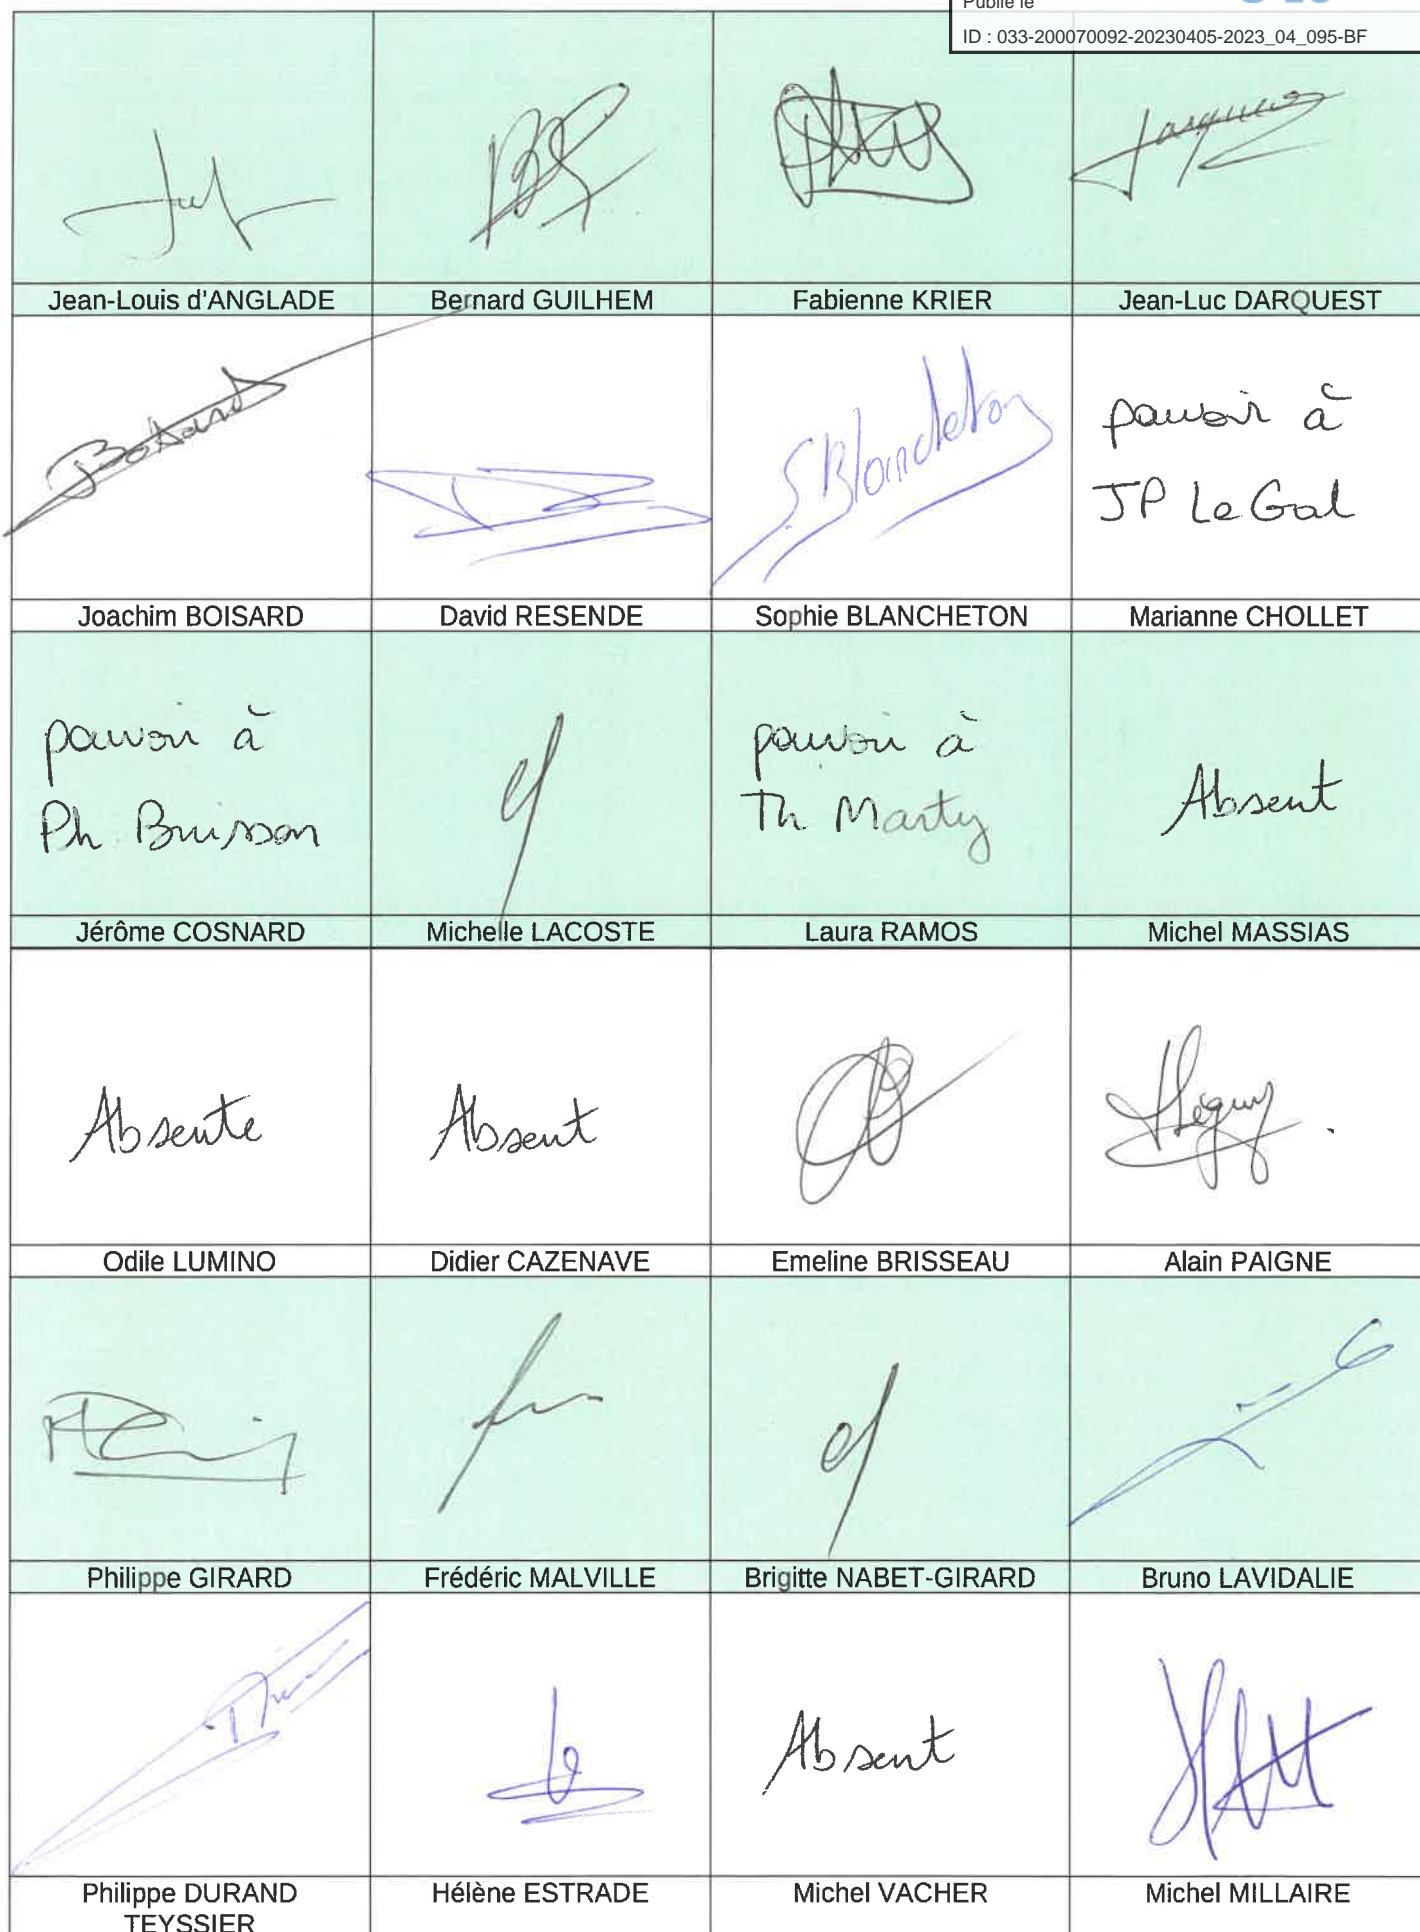 Publié le
ID : 033-200070092-20230405-2023_04_095-BF
Jean-Louis d'ANGLADE
Bernard GUILHEM
Fabienne KRIER
Jean-Luc DARQUEST
S. Blancheton
pouvoir à
JP Le Gal
Joachim BOISARD
David RESENDE
Sophie BLANCHETON
Marianne CHOLLET
pouvoir à
Ph Buisson
pouvoir à
Th Marty
Absent
Jérôme COSNARD
Michelle LACOSTE
Laura RAMOS
Michel MASSIAS
Absente
Absent
Odile LUMINO
Didier CAZENAVE
Emeline BRISSEAU
Alain PAIGNE
Philippe GIRARD
Frédéric MALVILLE
Brigitte NABET-GIRARD
Bruno LAVIDALIE
Absent
Philippe DURAND
TEYSSIER
Hélène ESTRADE
Michel VACHER
Michel MILLAIRE